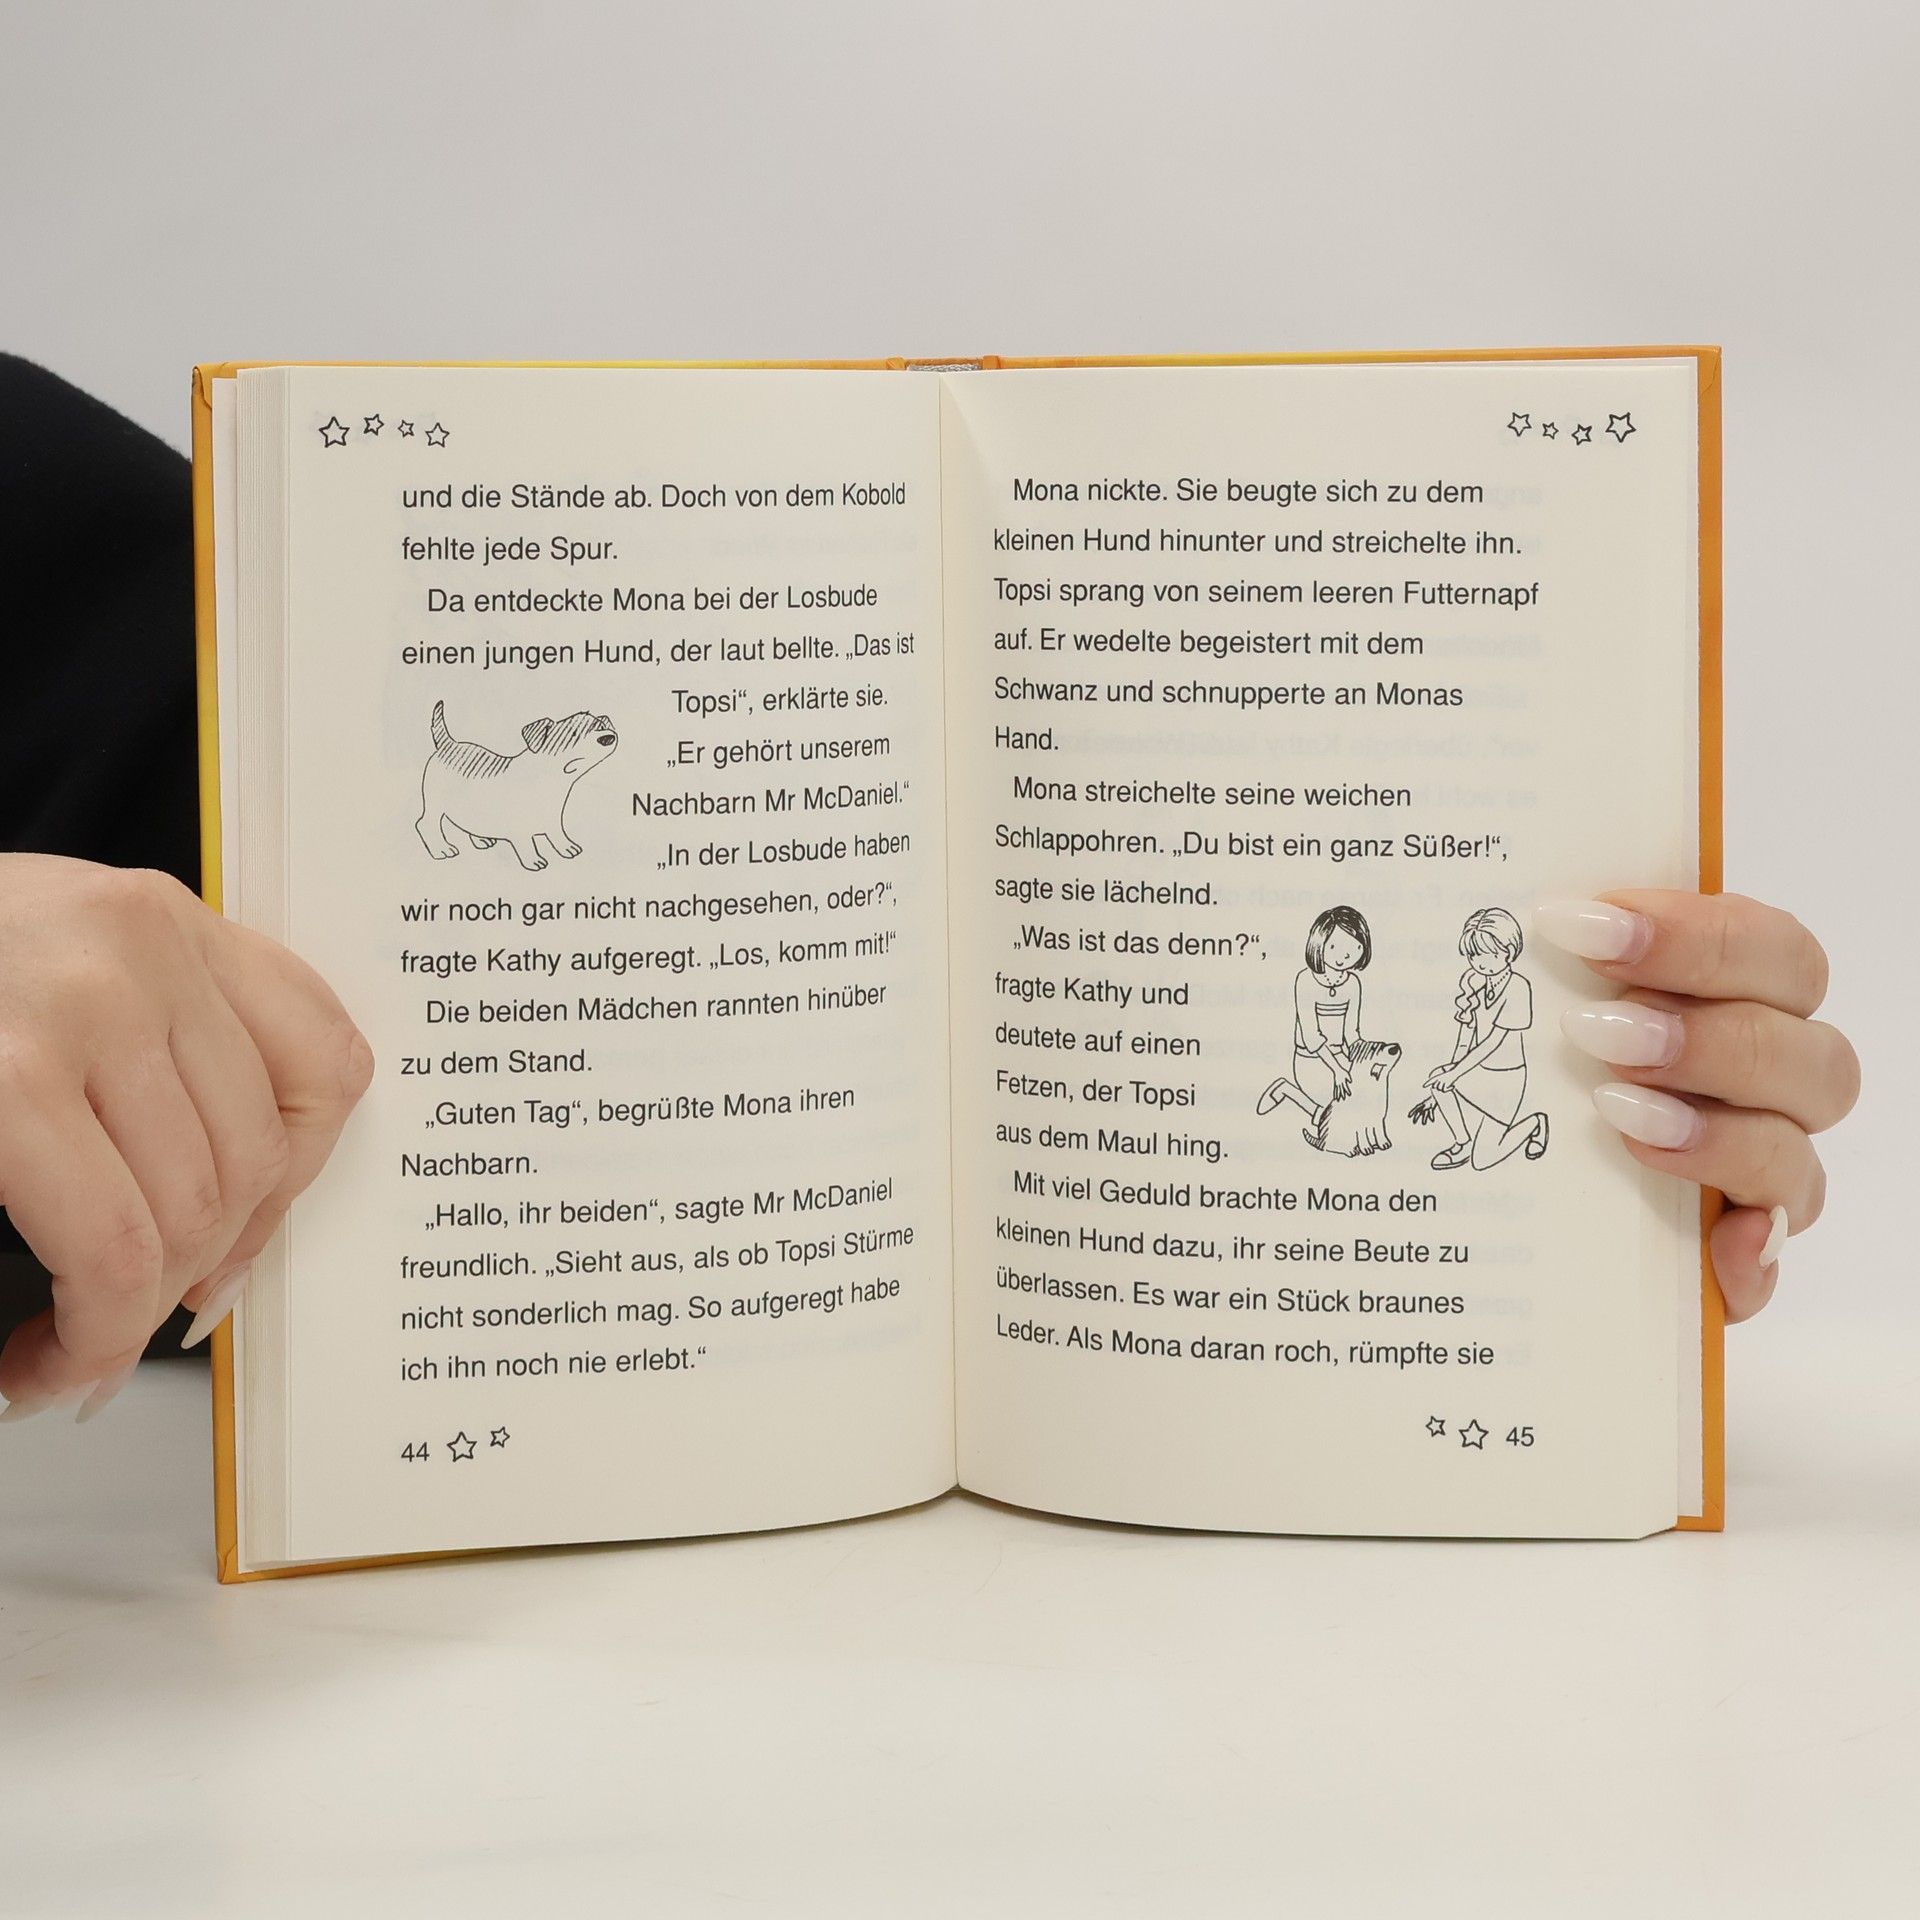 und die Stände ab. Doch von dem Kobold
fehlte jede Spur.
Da entdeckte Mona bei der Losbude
einen jungen Hund, der laut bellte. „Das ist
Topsi“, erklärte sie.
„Er gehört unserem
Nachbarn Mr McDaniel.“
„In der Losbude haben
wir noch gar nicht nachgesehen, oder?“,
fragte Kathy aufgeregt. „Los, komm mit!“
Die beiden Mädchen rannten hinüber
zu dem Stand.
„Guten Tag“, begrüßte Mona ihren
Nachbarn.
„Hallo, ihr beiden“, sagte Mr McDaniel
freundlich. „Sieht aus, als ob Topsi Stürme
nicht sonderlich mag. So aufgeregt habe
ich ihn noch nie erlebt.“
44
Mona nickte. Sie beugte sich zu dem
kleinen Hund hinunter und streichelte ihn.
Topsi sprang von seinem leeren Futternapf
auf. Er wedelte begeistert mit dem
Schwanz und schnupperte an Monas
Hand.
Mona streichelte seine weichen
Schlappohren. „Du bist ein ganz Süßer!“,
sagte sie lächelnd.
„Was ist das denn?“,
fragte Kathy und
deutete auf einen
Fetzen, der Topsi
aus dem Maul hing.
Mit viel Geduld brachte Mona den
kleinen Hund dazu, ihr seine Beute zu
überlassen. Es war ein Stück braunes
Leder. Als Mona daran roch, rümpfte sie
45